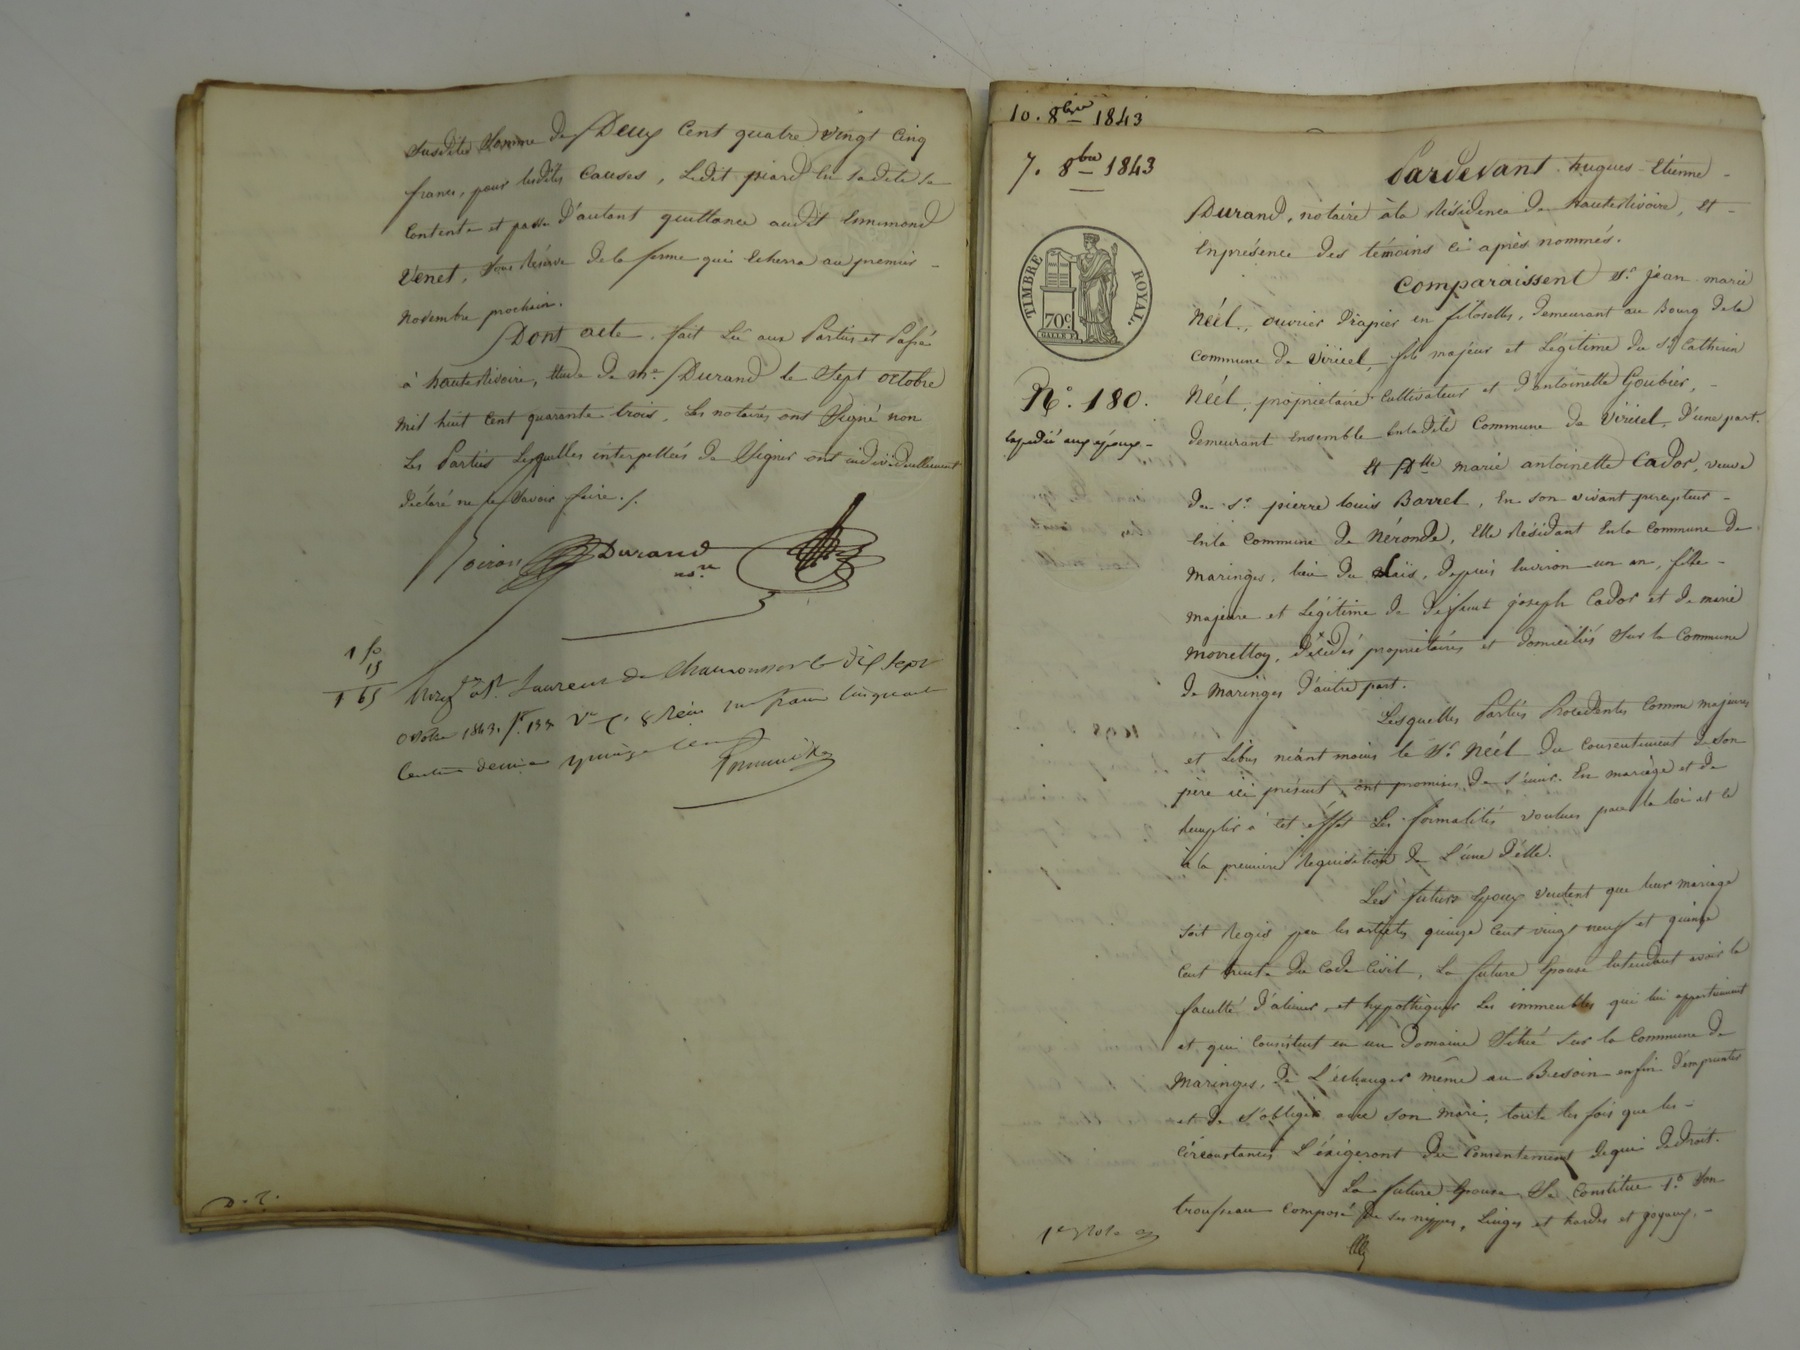 susdite somme de Deux Cent quatre vingt cinq
francs, pour lesdites Causes, Ledit piard en sadite se
Contente et passe d'autant quittance audit Emmonond
Venet, sous réserve de la ferme qui Echerra au premier -
Novembre prochain.
Dont acte. fait Lu aux Parties et Passé
à hauterivoire, étude de me. Durand le Sept octobre
mil huit Cent quarante trois. Les notaires ont signé non
Les Parties Lesquelles interpellées de Signer ont individuellement
déclaré ne le savoir faire./.
Durand
nore
1 50
15
1 65
Enregé à St. Laurent de Chamousset le dix sept
octobre 1843. fo. 133 Vo C. 8 Reçu un franc cinquante
Centimes decime quinze cent
D. 2.
10. 8bre 1843
7. 8bre 1843
Pardevant hugues-Etienne -
Durand, notaire à la Résidence de hauterivoire, et -
En présence des témoins ci après nommés.
Comparaissent sr. jean marie
Néél, ouvrier drapier en filoselles, demeurant au Bourg de la
Commune de Viricel, fils majeur et Légitime du sr. Catherin
Néél, propriétaire-Cultivateur et d'antoinette Goubier, -
demeurant Ensemble Enladite Commune de Viricel, d'une part.
Et Dlle marie antoinette Cador, veuve
de sr. pierre louis Barrel, En son vivant percepteur -
Enla Commune de Néronde, Elle Résidant Enla Commune de
Maringes, lieu du Laïs, depuis Environ un an, fille -
majeure et Légitime de deffunt joseph Cador et de marie
, décédés propriétaires et domiciliés sur la Commune
de Maringes d'autre part.
Lesquelles Parties Procedentes Comme majeures
et Libres néantmoins le sr. Néél du Consentement de son
père ici présent, ont promises de s'unir En mariage et de
Remplir à cet effet Les formalités voulues par la loi et ce
à la première Requisition de L'une d'elle.
Les futurs Epoux veulent que leur mariage
soit Régis par les articles quinze Cent vingt neuf et quinze
Cent trente du Code Civil, La future Epouse Entendant avoir la
faculté d'aliéner, et hypothéquer Les immeubles qui lui appartiennent
et qui Consistent en un domaine Situé sur la Commune de
Maringes, de L'échanger même au Besoin enfin d'emprunter
et de s'obliger avec son mari, toute les fois que les -
Circonstances L'éxigeront du Consentement de qui de droit.
La future Epouse Se Constitue 1.º Son
trousseau Composé de ses nippes, Linges et hardes et joyaux, -
TIMBRE ROYAL.
70c
No. 180.
Expedié aux époux -